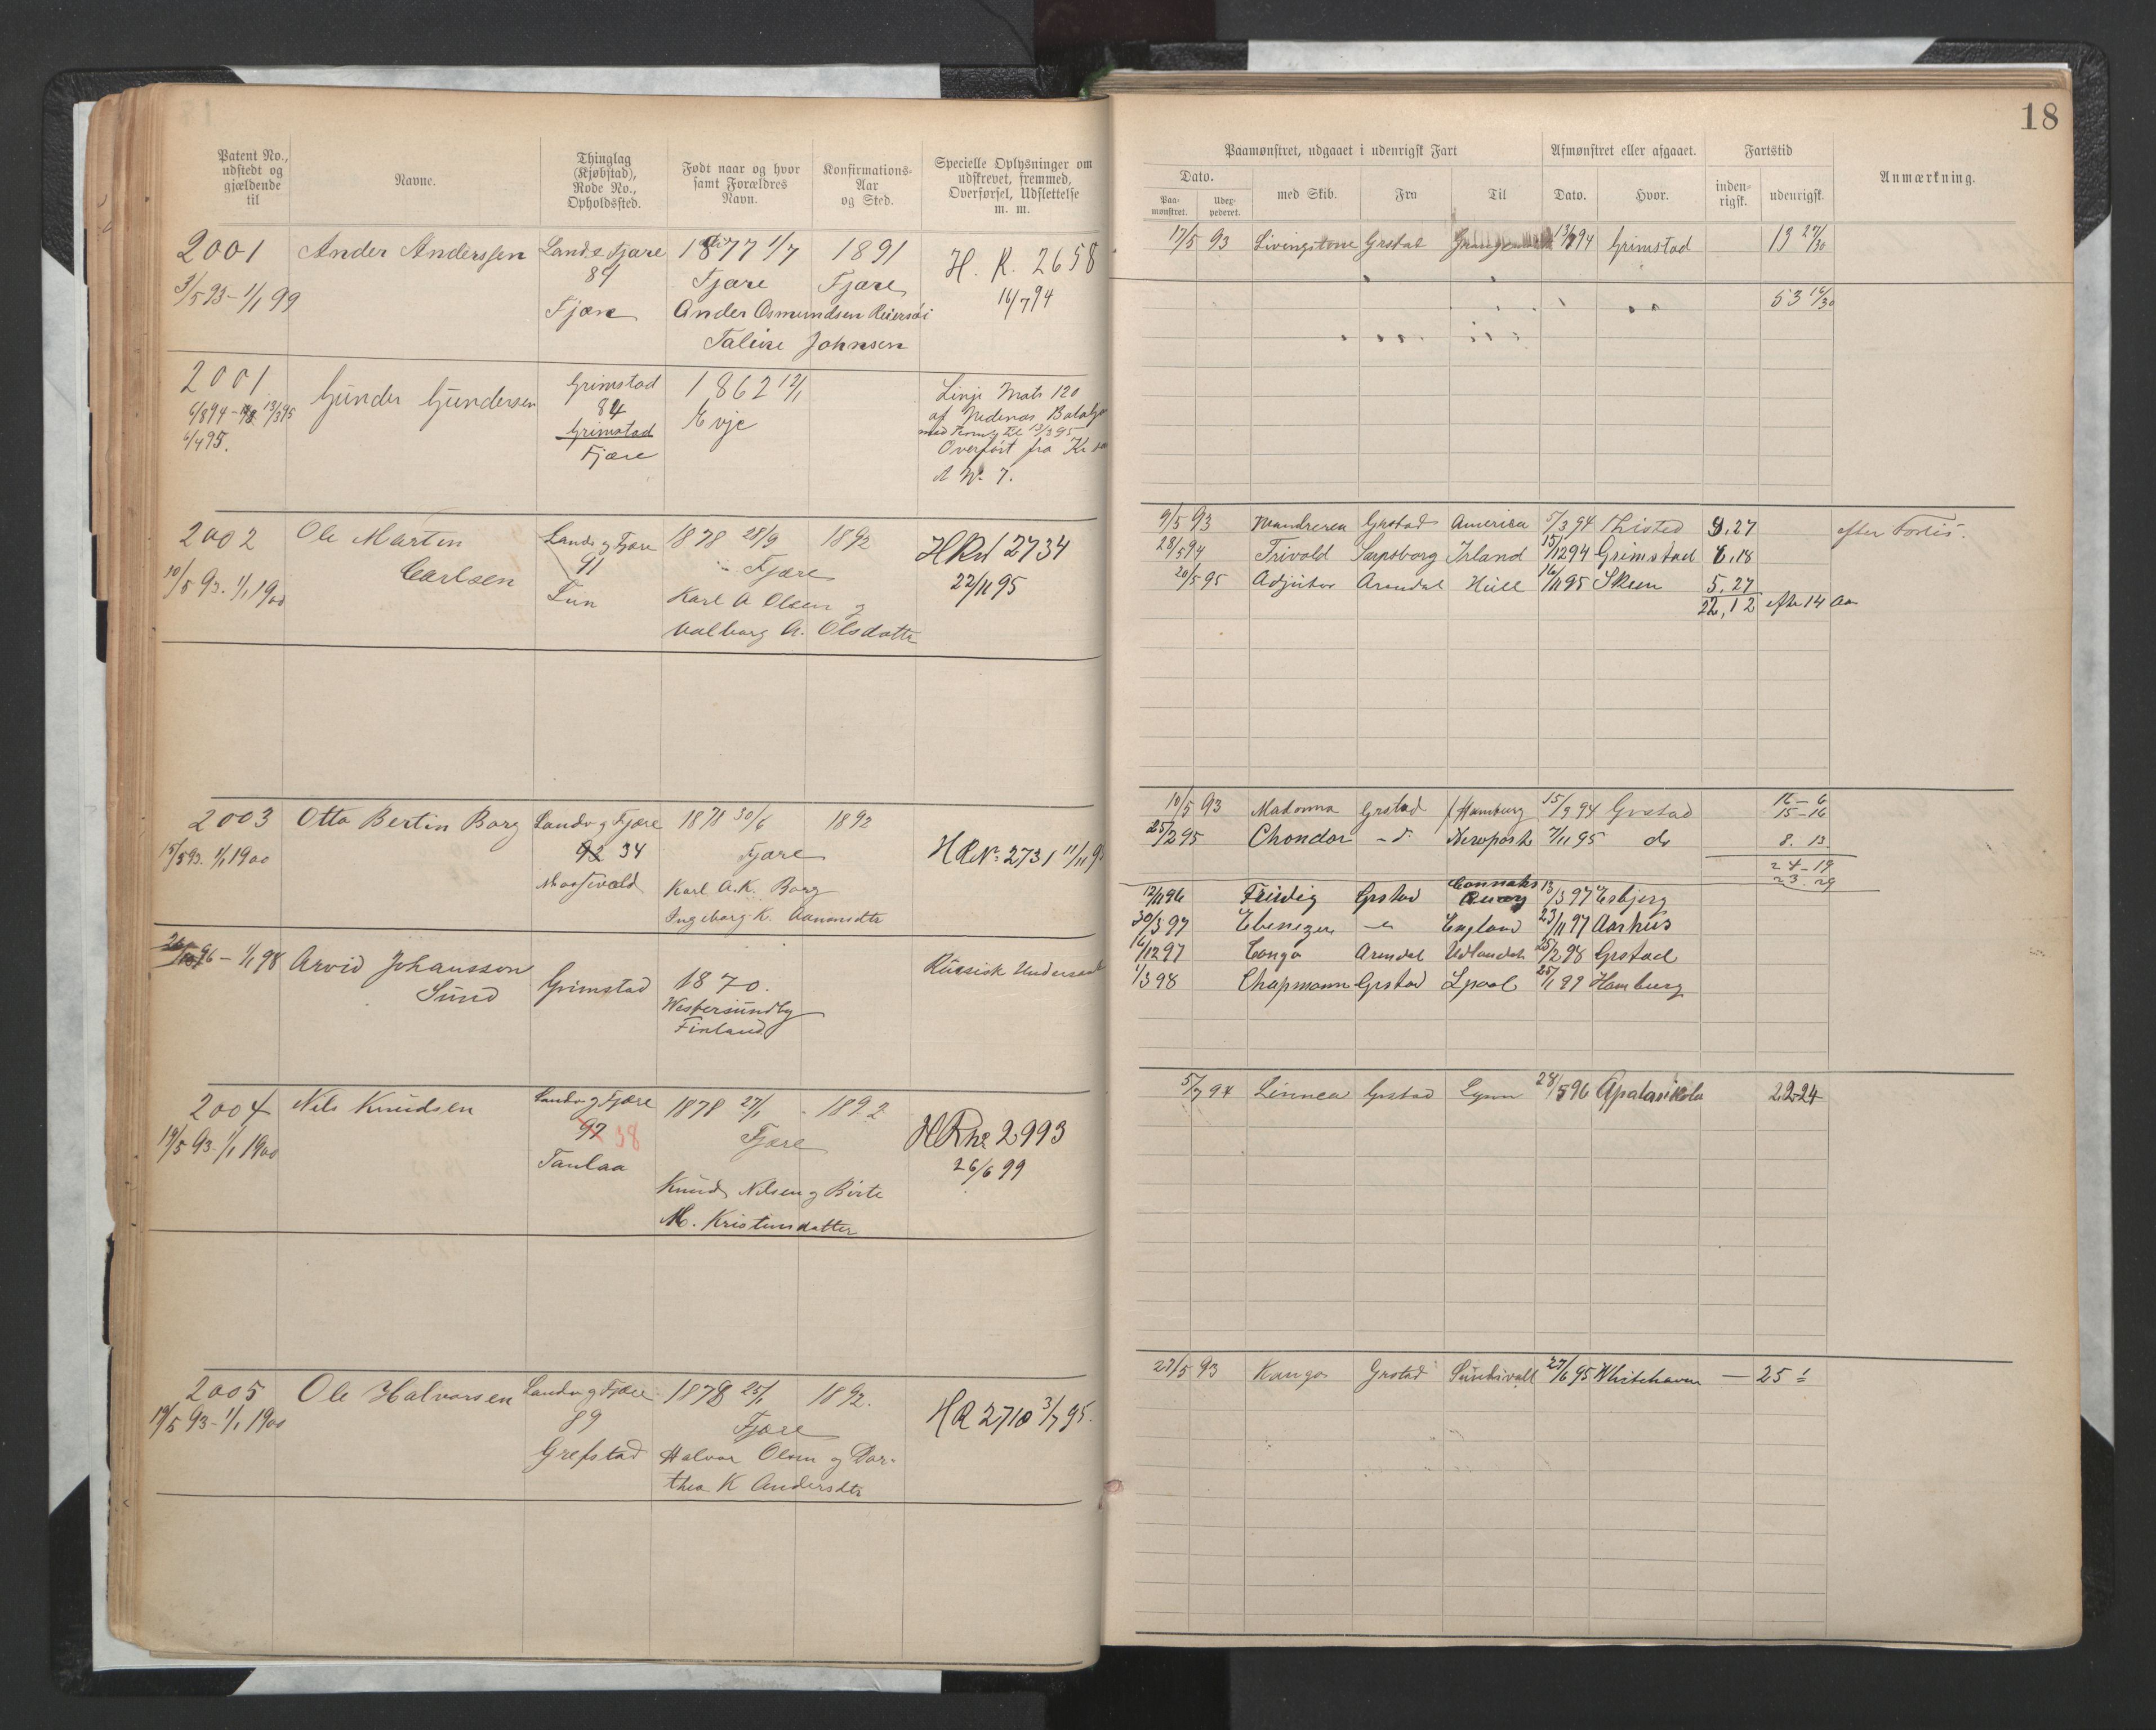 18
Patent No., udstedt og gjældende til
Navne.
Thinglag (Kjøbstad), Rode No., Opholdssted.
Født naar og hvor samt Forældres Navn.
Konfirmations-Aar og Sted.
Specielle Oplysninger om udskrevet, fremmed, Overførsel, Udslettelse m. m.
Paamønstret, udgaaet i udenrigsk Fart
Afmønstret eller afgaaet.
Fartstid
Anmærkning.
Dato.
Paa-mønstret.
Udex-pederet.
med Skib.
Fra
Til
Dato.
Hvor.
inden-rigsk.
udenrigsk.
2001 Ander Anderssen Landv Fjære 1877 1/7 1891 H. R. 2658
3/5 93 - 1/1 99 84 Fjære Fjære 16/7 94
Fjære Ander Osmundsen Reiersøi
Taline Johnsen
17/5 93 Livingstone Grstad 13/7 94 Grimstad 13 27/30
53 16/30
2001 Gunder Gundersen Grimstad 1862 12/1 Linje Mats 120
84 Evje af Nedenæs Batalj
6/4 95. Grimstad 13/3 95
Fjære Overført fra
A No 7.
2002 Ole Martin Landv og Fjære 1878 28/9 1892 HRul 2734
Carlsen 91 Fjære 22/11 95
10/5 93. 1/1 1900 Karl A Olsen og
Valborg A. Olsdatte
9/5 93 Grstad America 5/3 94 Thisted 9.27
28/5 94 Trivold Sarpsborg Irland 15/12 94 Grimstad 6.18
20/5 95 Adjutor Arendal Hull 16/11 95 Skien 5.27
22.12 efter 14 Aar
efter Forlis.
2003 Otto Bertin Borg Landv og Fjære 1878 30/6 1892
15/5 93. 1/1 1900 92 34 Fjære HR No 2731 11/11 9
Karl A. K. Borg
Ingeborg K. Aanonsdtr
10/5 93 Madonna Grstad Hamburg 15/9 94 Grstad 16-6
15-16
25/2 95 Chondor - d. 7/11 95 do 8. 13
24-19
23.29
96 - 1/1 98 Arvid Johansson Grimstad 1870. Russisk Undersaat
Sund Westersundby
Finland
12/11 96 Fredig Grstad Connahs Quay 13/3 97 Esbjerg
30/3 97 Ebenezer - " England 23/11 97 Aarhus
16/12 97 Congo Arendal Udlandet 25/2 98 Grstad
1/3 98 Chapmann Grstad Lpool 25/1 99 Hamburg
2004 Nils Knudsen Landv og Fjære 1878 27/1 1892
19/5 93. 1/1 1900 97 38 Fjære HR No 2993
26/6 99
Knud Nilsen og Birte
M. Kristensdatter
5/7 94 Linnea Grstad Lynn 28/5 96 Apalasikola 22 24
2005 Ole Halvorsen Landv og Fjære 1878 25/1 1892.
19/5 93 - 1/1 1900 89 Fjære HR 2710 3/7 95.
Grefstad Halvor Olsen og Dor-
thea K Andersdtr
27/5 93 Kongo Grstad Sundsvall 27/6 95 Whitehaven - 25 1